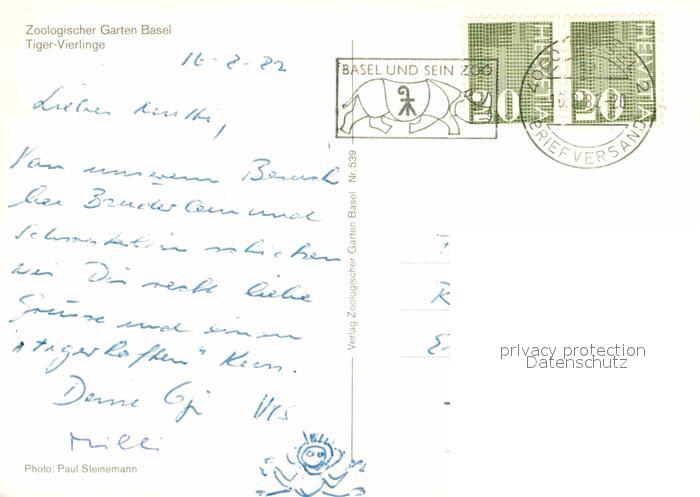 Zoologischer Garten Basel
Tiger-Vierlinge
16-8-82
BASEL UND SEIN ZOO
HELVETIA
50
HELVETIA
50
BRIEFVERSAND
Lieber
Von unserem Besuch
bei Bruderlein und
Schwesterlein schicken
wir Dir recht liebe
Grüsse und einen
"tigerhaften" Kuss.
Deine
Photo: Paul Steinemann
Verlag Zoologischer Garten Basel Nr. 539
privacy protection
Datenschutz